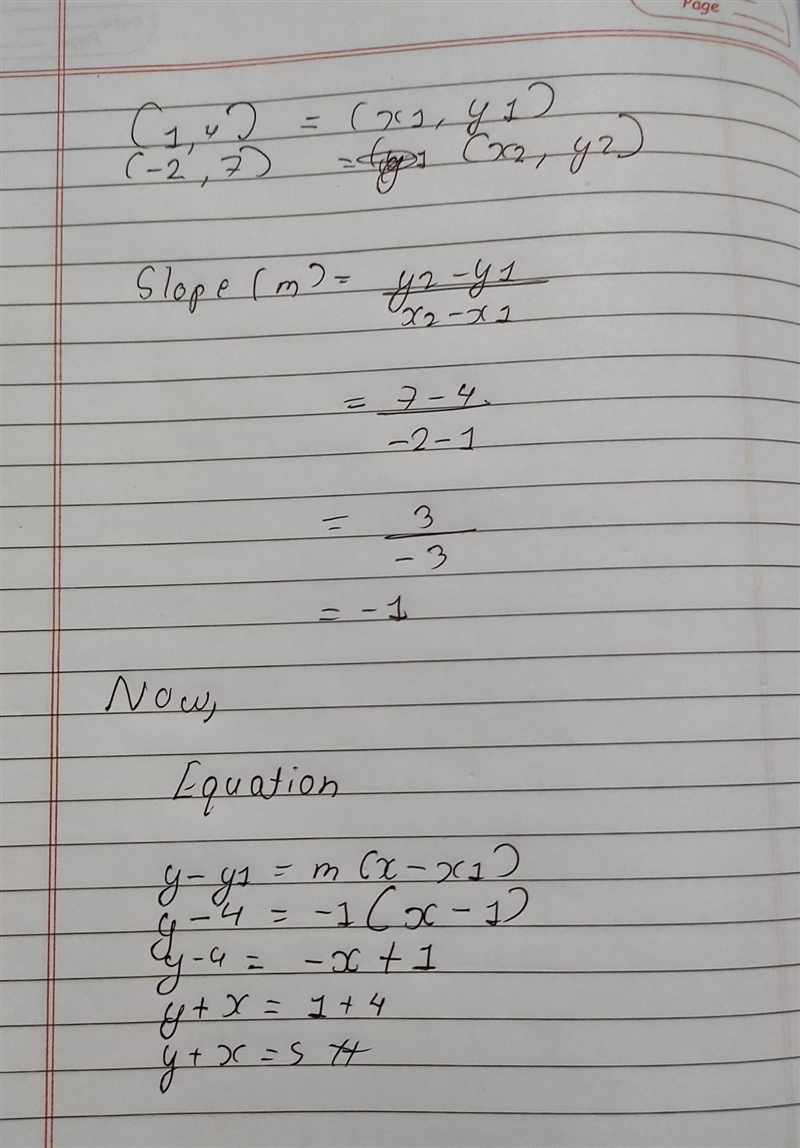 Page
(1,4) = (x1, y1)
(-2,7) = (x2, y2)
Slope (m) = y2-y1
x2-x1
= 7-4
-2-1
= 3
-3
= -1
Now,
Equation
y-y1 = m(x-x1)
y-4 = -1(x-1)
y-4 = -x+1
y+x = 1+4
y+x = 5 #